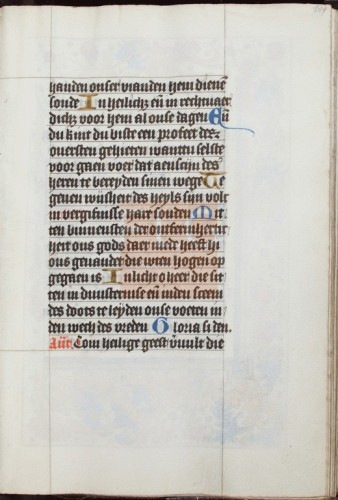 handen onser vianden hem dienē
soude In heilichz eñ in rechtuaer
dichz voor hem al onse dagen Eñ
du kint du biste een profeet des
ouersten geheten want du selste
voor gaen voer dat aenschijn des
heren te bereyden sinen wege Te
geuen wijsheit des heyls sijn volc
in vergifnisse haer sonden Mit
ten binnensten der ontfermhertic
heit ons gods daer mede heeft hi
ons geuandet die wten hogen op
gegaen is In licht o heer die sit
ten in duusternise eñ inden sceem
des doots te leyden onse voeten in
den wech des vreden Gloria si den.
Añt Com heilige geest vvult die